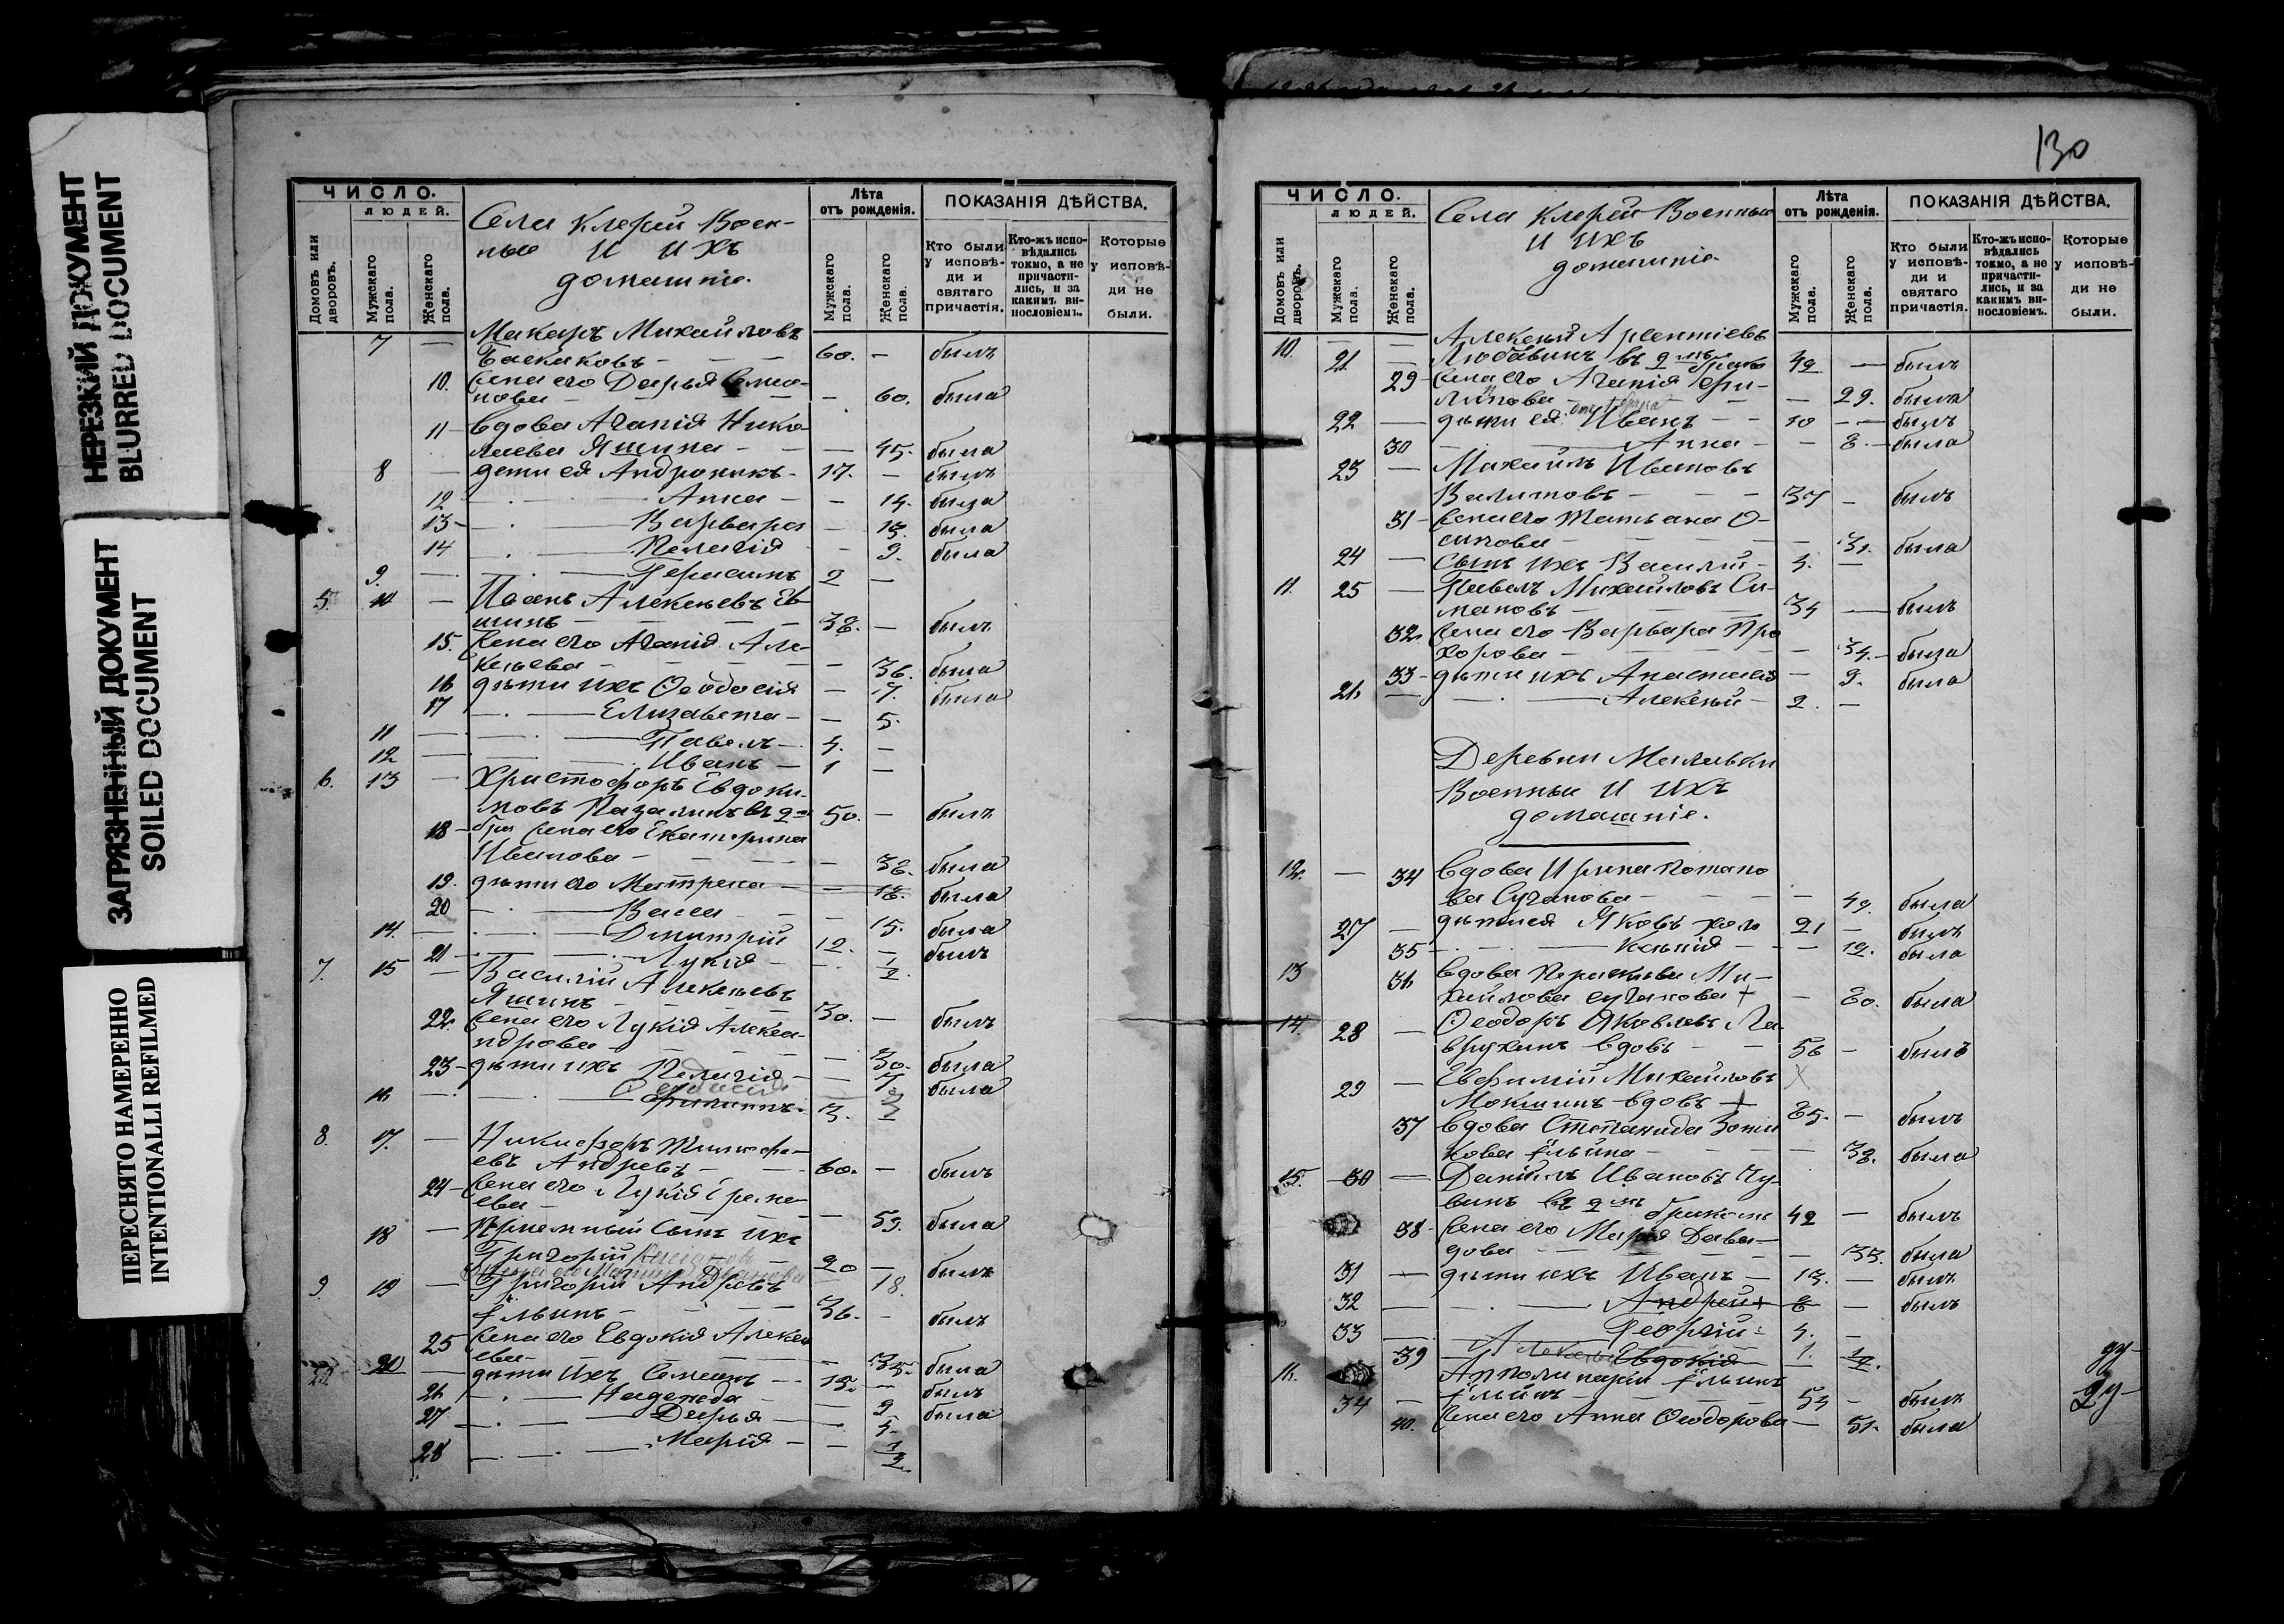 НЕРЕЗКИЙ ДОКУМЕНТ
BLURRED DOCUMENT
ЗАГРЯЗНЕННЫЙ ДОКУМЕНТ
SOILED DOCUMENT
ПЕРЕСНЯТО НАМЕРЕННО
INTENTIONALLI REFILMED
ЧИСЛО.
ЛЮДЕЙ.
Домовъ или дворовъ.
Мужскаго пола.
Женскаго пола.
Села Клерий Воен-
ные И ихъ
домашніе.
Лѣта
отъ рожденія.
Мужскаго пола.
Женскаго пола.
ПОКАЗАНІЯ ДѢЙСТВА.
Кто были у исповѣ-ди и святаго причастія.
Кто-жъ испо-вѣдались токмо, а не причасти-лись, и за какимъ ви-нословіемъ.
Которые у исповѣ-ди не были.
7 — Макаръ Михайловъ
Баскаковъ — 60. — былъ
10. жена его Дарья Семе-
нова — — 60. была
11 — вдова Агапія Нико-
лаева Яшина — — 45. была
8 — дети ея Андроникъ — 17. — былъ
12 — Анна — — 14. была
13 — Варвара — 13. была
14 — Пелагія — 9. была
9. — Герасимъ 2 —
5. 10 —
Алексѣевъ
38. — былъ
15. жена его Агапія Але-
ксѣева — — 36. была
16 дѣти ихъ Ѳеодосія — 7. была
17 — Елизавета — — 5.
11 — Павелъ — 4. —
12 — Иванъ — 1 —
6. 13 — Христофоръ Евдоки-
мовъ
въ 2 мъ 50. — былъ
18 — бра жена его Екатерина
Иванова — — 38. была
19. дѣти его Матрена — — 18. была
20 — Васса — — 15. была
14. — Дмитрій 12. — былъ
21 — Лукія — — 1/2.
7. 15 — Василій Алексѣевъ
Яшинъ — 30. — былъ
22. жена его Лукія Алекса-
ндрова — — 30. была
23 — дѣти ихъ Пелагія — — 7 была
16 — Филиппъ — 3.
8. 17. — Никифоръ Тимофе-
евъ Андреевъ — 60. — былъ
24 — жена его Лукія
ева — — 59. была
18 — Пріемный сынъ ихъ
Григорій — 20 — былъ
18.
9. 19 — Григорій Андреевъ
Ѳльинъ — 36. — былъ
25 жена его Евдокія Алексѣ
ева — — 35. была
20 — дѣти ихъ Семенъ — 13. — былъ
26 — Надежда — — 9 была
27 — Дарья — — 4.
28 — Марія — — 1/2.
130
ЧИСЛО.
ЛЮДЕЙ.
Домовъ или дворовъ.
Мужскаго пола.
Женскаго пола.
Села Клерий Военные
И ихъ
домашніе.
Лѣта
отъ рожденія.
Мужскаго пола.
Женскаго пола.
ПОКАЗАНІЯ ДѢЙСТВА.
Кто были у исповѣ-ди и святаго причастія.
Кто-жъ испо-вѣдались токмо, а не причасти-лись, и за какимъ ви-нословіемъ.
Которые у исповѣ-ди не были.
10. — — Алексѣй Арсентіевъ
21. — Любавинъ въ 2 мъ бракѣ 42 — былъ
29 — жена его Агапія Фи-
липова — — 29. была
22 — дѣти ея Иванъ — — 10 — былъ
30 — Анна — — 8. — была
23 — Михаилъ Ивановъ
— 37 — былъ
31 — жена его Татьяна О-
сипова — — 31. была
24 — Сынъ ихъ Василій — 4. —
11. 25 — Павелъ Михайловъ Си-
мановъ — 34 — былъ
32. жена его Варвара Про
хорова — — 34. — была
33 — дѣти ихъ Анастасія — 9. была
26 — Алексѣй — 2. —
Деревни
Военные И ихъ
домашніе.
12. — 34 вдова Ирина Потапо
ва Суганова — — 49. была
27 — дѣти ея Яковъ холо 21 — былъ
35 — Ксенія — — 12. была
13 36 вдова Параскева Ми-
хайлова Суганова + — 80. была
14. 28 — Ѳеодоръ Яковлевъ Ла
врухинъ вдовъ — 56 — былъ
29 — Евфимій Михайловъ
Мокшинъ вдовъ + 85. — былъ
37 вдова Степанида Зоти
кова Ѳльина — — 38. была
15. 30 — Даніилъ Ивановъ Чу-
винъ въ 2 мъ бракомъ 42 — былъ
38 — жена его Марія Давы-
дова — — 33. была
31 — дѣти ихъ Иванъ — 13. — былъ
32 — Андрей + 8 — былъ
33 — Георгій — 4. —
39 — Алексѣй Евдокія 1. 1/2.
16. Апполинарій Ѳльинъ
34 — Ѳльинъ — 54 — былъ
40. жена его Анна Ѳеодорова — 51. была